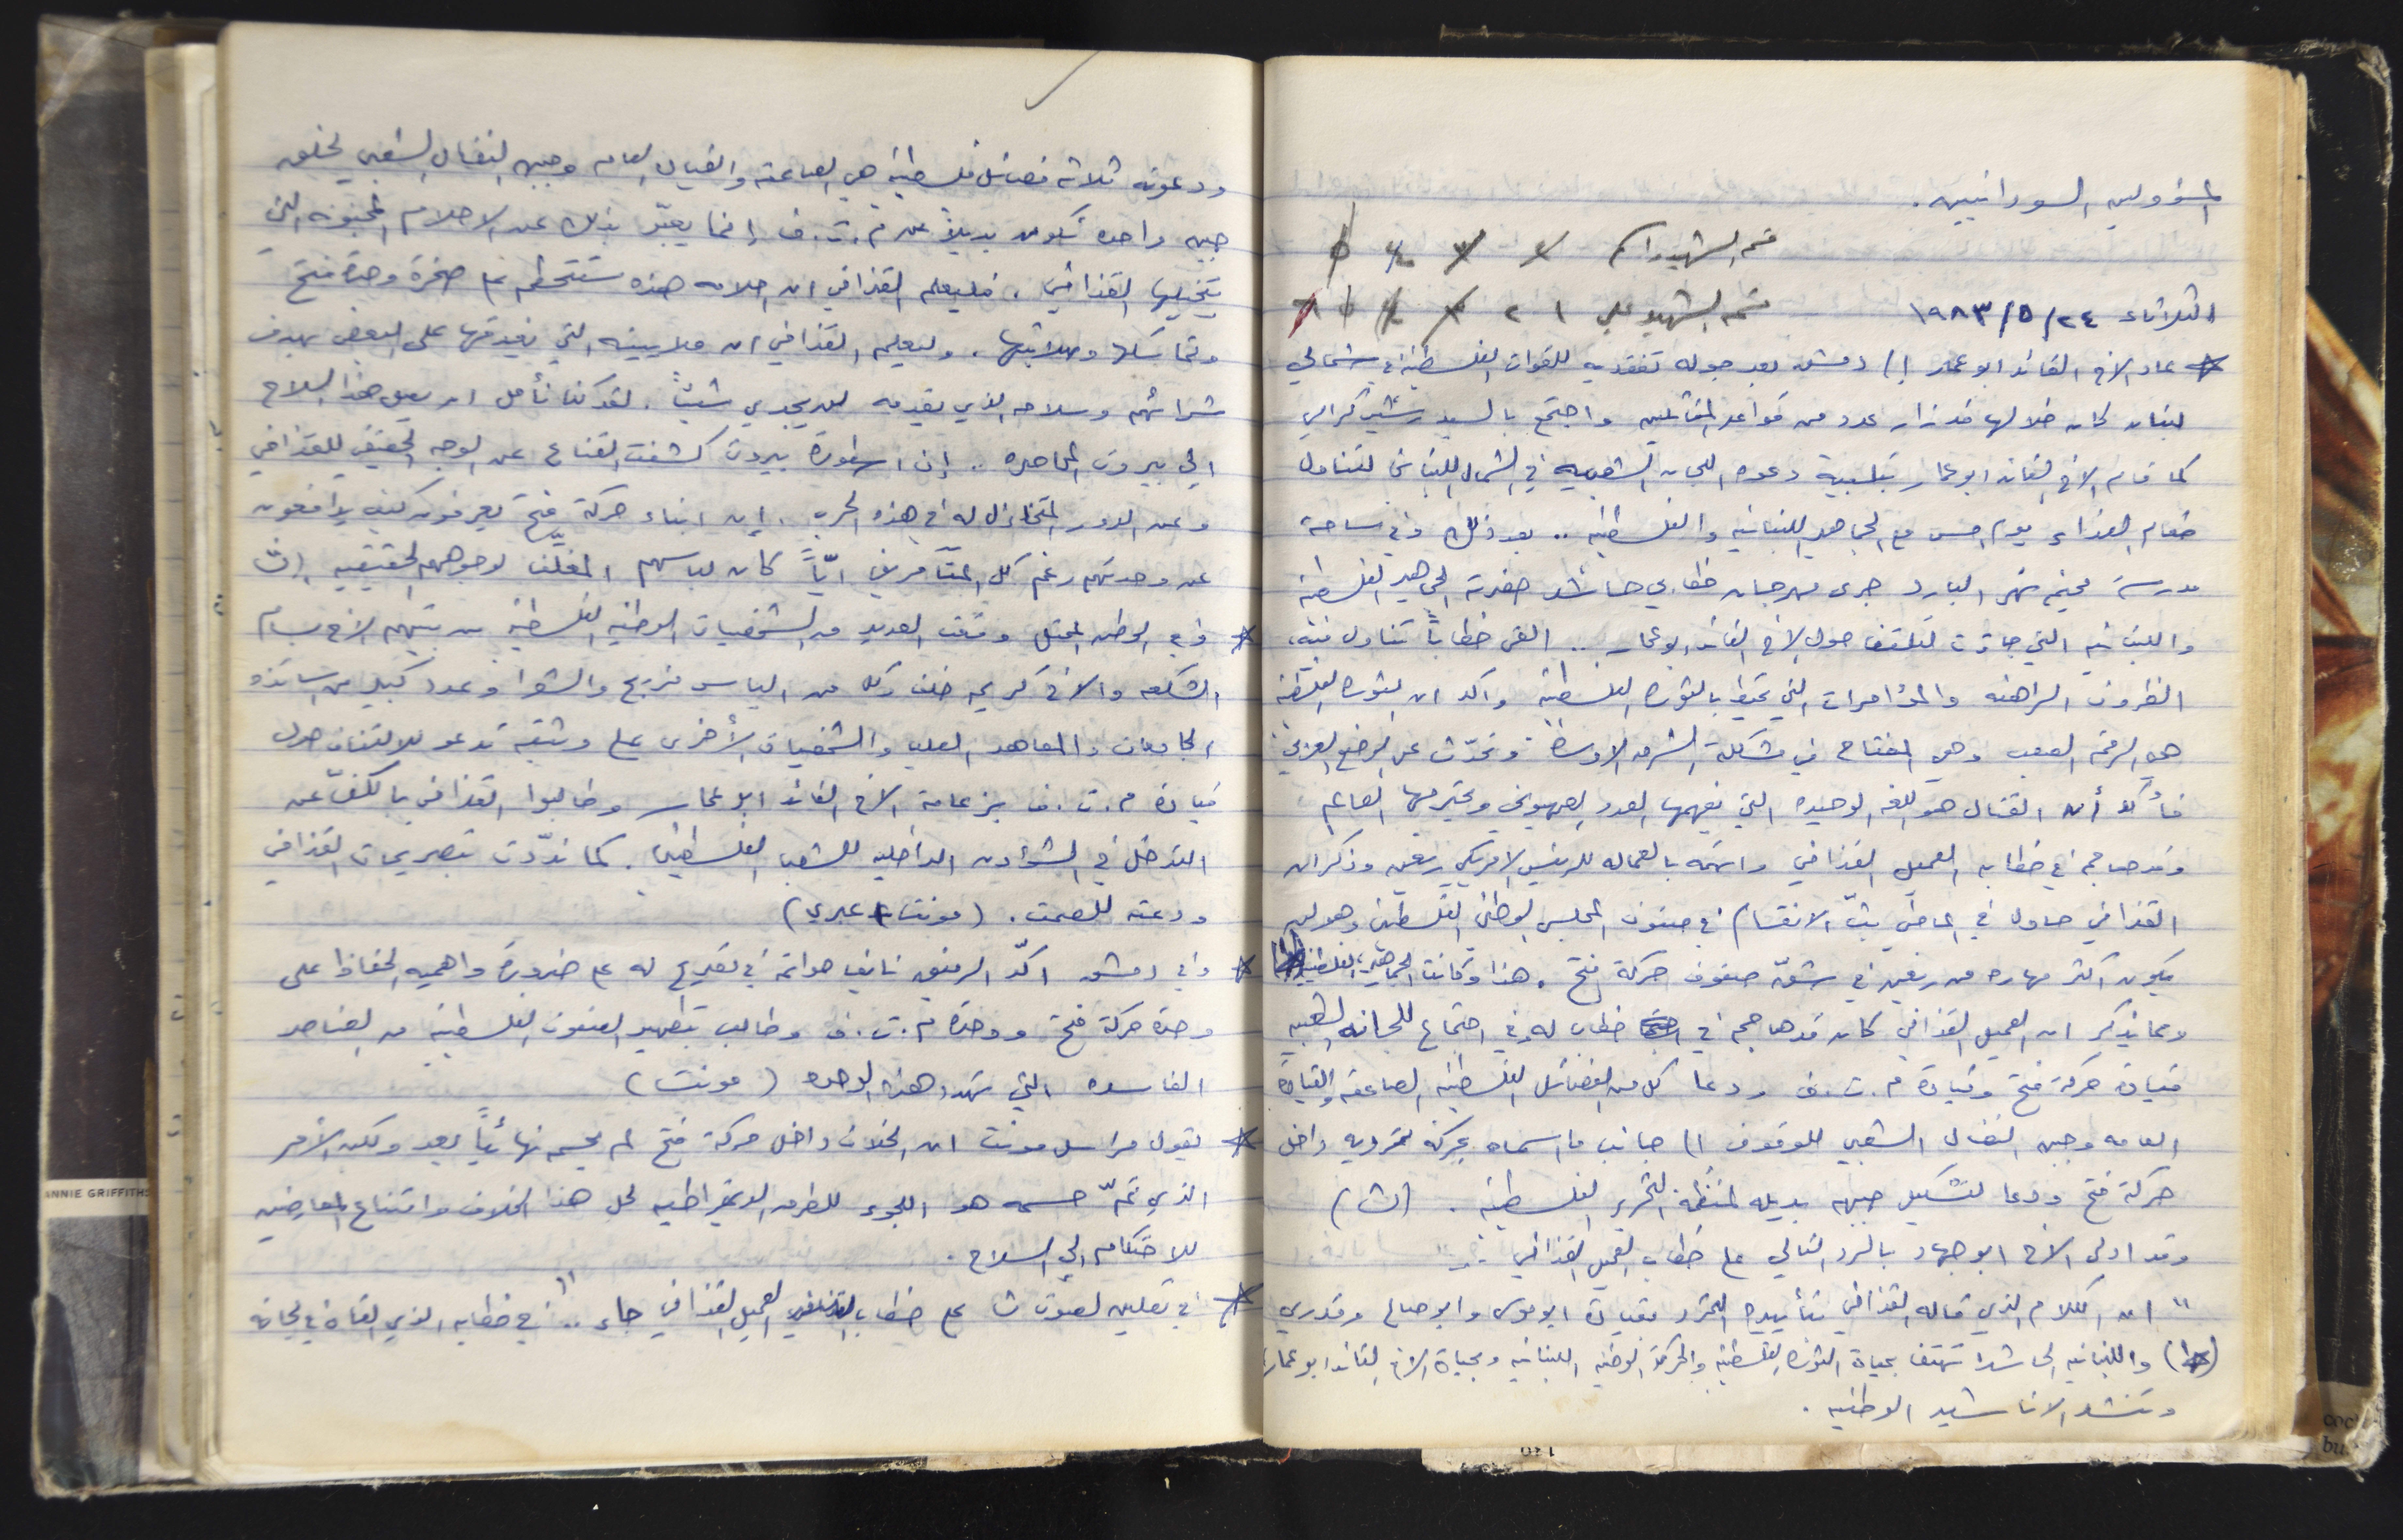 المسؤولين السودانيين.
قسم الشهيد ١ ٢ ٣ ٤ ٥
الثلاثاء ٢٤/٥/١٩٨٣ قسم الشهيد علي ١ ٢ ٣ ٤ ٥ ٦
* عاد الاخ القائد ابو عمار إلى دمشق بعد جوله تفقديه للقوات الفلسطينيه في شمالي
لبنان كان خلالها قد زار عدد من قواعد المقاتلين واجتمع بالسيد رشيد كرامي
كما قام الاخ القائد ابو عمار بتلبية دعوه اللجان الشعبيه في الشمال اللبناني لتناول
طعام الغذاء يوم امس مع الجماهير اللبنانيه والفلسطينيه .. بعد ذلك وفي ساحة
مدرسة مخيم نهر البارد جرى مهرجان خطابي حاشد حضرته الجماهير الفلسطينيه
واللبنانيه التي جاءت لتلتف حول الاخ القائد ابو عمار .. القى خطاباً تناول فيه
الظروف الراهنه والمؤامرات التي تحيط بالثوره الفلسطينيه واكد ان الثوره الفلسطينيه
هي الرقم الصعب وهي المفتاح في مشكلة الشرق الاوسط وتحدّث عن الوضع العربي
فأكد أن القتال هو اللغه الوحيده التي يفهمها العدو الصهيوني ويحترمها العالم
وقد هاجم في خطابه العميل القذافي واتهمه بالعماله للرئيس الامريكي ريغن وذكر ان
القذافي حاول في الماضي بثّ الانقسام في صفوف المجلس الوطني الفلسطيني وهو لن
يكون اكثر مهاره من ريغن في شقّ صفوف حركة فتح . هذا وكانت الجماهير الفلسطينيه (١)
ومما يذكر ان العميل القذافي كان قد هاجم في خطاب له في اجتماع للجانه الشعبيه
قيادة حركة فتح وقيادة م.ت.ف ودعا كل من الفصائل الفلسطينيه الصاعقه والقيادة
العامه وجبهه النضال الشعبي للوقوف إلى جانب ما اسماه بحركة تمرديه داخل
حركة فتح ودعا لتشكيل جبهه بديله لمنظمة التحرير الفلسطينيه . (ث)
وقد ادلى الاخ ابو جهاد بالرد التالي على خطاب العميل القذافي :
" ان الكلام الذي قاله القذافي بتأييده التمرد بقيادة ابو موسى وابو صالح وقدري
(١) واللبنانيه الحاشده تهتف بحياة الثوره الفلسطينيه والحركة الوطنيه اللبنانيه وبحياة الاخ القائد ابو عمار
وتنشد الاناشيد الوطنيه .
ودعوته ثلاثه فصائل فلسطينيه هي الصاعقه والقياده العامه وجبهه النضال الشعبي لخلق
جبهه واحده تكون بديلاً عن م.ت.ف إنما يعبّر بذلك عن الاحلام المجنونه التي
يتخيلها القذافي . فليعلم القذافي ان احلامه هذه ستتحطم على صخرة وحدة فتح
وتماسكها وصلابتها . وليعلم القذافي ان ملايينه التي يغدقها على البعض بهدف
شرائهم وسلاحه الذي يقدمه لن يجدي شيئاً . لقد كنا نأمل ان يصل هذا السلاح
الى بيروت المحاصره .. إن اسطورة بيروت كشفت القناع عن الوجه الحقيقي للقذافي
وعن الدور المتخاذل له في هذه الحرب . إن ابناء حركة فتح يعرفون كيف يدافعون
عن وحدتهم رغم كل المتآمرين ايّاً كان لباسهم المغلّف لوجوههم الحقيقيه (ث)
* وفي الوطن المحتل وقّعت العديد من الشخصيات الوطنيه الفلسطينيه من بينهم الاخ بسام
الشكعه والاخ كريم خلف وكل من الياس فريج والشوا وعدد كبير من اساتذه
الجامعات والمعاهد العليا والشخصيات الأخرى على وثيقه تدعو للالتفاف حول
قيادة م.ت.ف بزعامة الاخ القائد ابو عمار وطالبوا القذافي بالكفّ عن
التدخل في الشؤون الداخليه للشعب الفلسطيني . كما ندّدت بتصريحات القذافي
ودعته للصمت . (مونت + عبري)
* وفي دمشق اكّد الرفيق نايف حواتمه في تصريح له على ضرورة واهميه الحفاظ على
وحدة حركة فتح ووحدة م.ت.ف وطالب بتطهير الصفوف الفلسطينيه من العناصر
الفاسده التي تهدد هذه الوحده (مونت)
* يقول مراسل مونت ان الخلاف داخل حركة فتح لم يحسم نهائياً بعد ولكن الأمر
الذي تمّ حسمه هو اللجوء للطرق الديمقراطيه لحل هذا الخلاف وامتناع المعارضين
للاحتكام الى السلاح .
* في تعليق لصوت على خطاب العميل القذافي جاء .. " في خطابه الذي القاه في لجانه
ANNIE GRIFFITHS